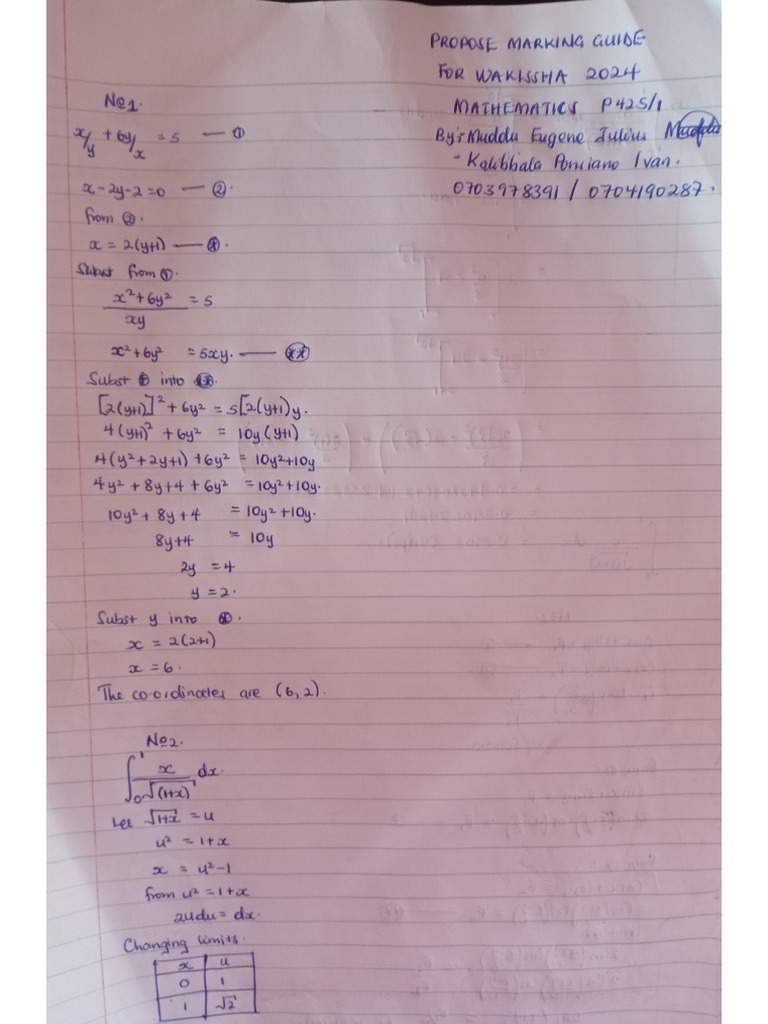 PROPOSE MARKING GUIDE
FOR WAKISSHA 2024
MATHEMATICS P425/1
By: Muddu Eugene Juliu
- Kalibbala Ponciano Ivan.
0703978391 / 0704190287.
No1.
x/y + 6y/x = 5 — ①
x - 2y - 2 = 0 — ②.
from ②.
x = 2(y+1) — ⊛.
Subst from ①.
x² + 6y² / xy = 5
x² + 6y² = 5xy. — (**)
Subst ⊛ into (**).
[2(y+1)]² + 6y² = 5[2(y+1)y.
4(y+1)² + 6y² = 10y(y+1)
4(y² + 2y+1) + 6y² = 10y²+10y
4y² + 8y + 4 + 6y² = 10y² + 10y.
10y² + 8y + 4 = 10y² + 10y.
8y + 4 = 10y
2y = 4
y = 2.
Subst y into ⊛.
x = 2(2+1)
x = 6.
The co-ordinates are (6, 2).
No2.
∫₀¹ x/√(1+x) dx.
Let √1+x = u
u² = 1 + x
x = u² - 1
from u² = 1 + x
2udu = dx.
Changing limits.
x u
0 1
1 √2